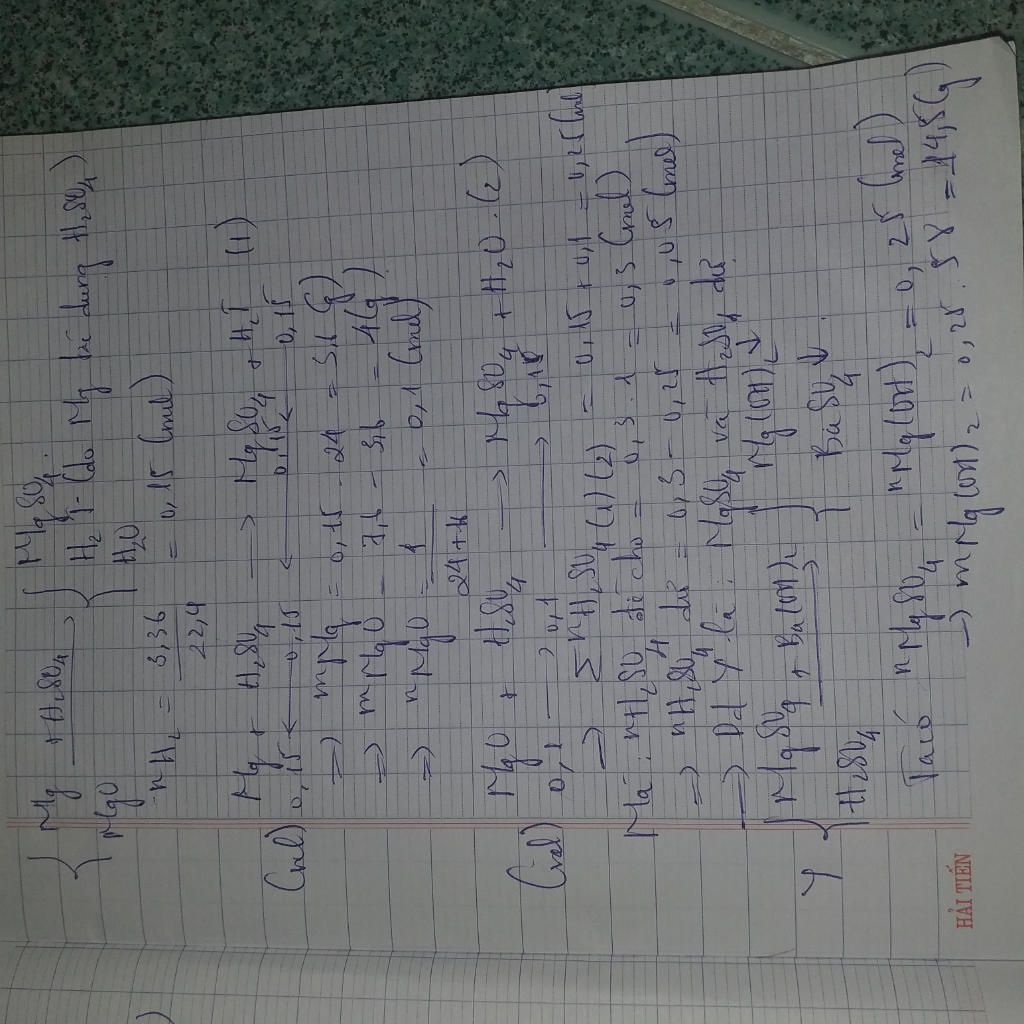 { Mg +H₂SO₄ → { MgSO₄.
MgO H₂↑ (do Mg td dùng H₂SO₄)
H₂O
nH₂ = 3,36 / 22,4 = 0,15 (mol)
Mg + H₂SO₄ → MgSO₄ + H₂↑ (1)
(mol) 0,15 ← 0,15 ← 0,15 ← 0,15
=> mMg = 0,15 . 24 = 3,6 (g)
=> mMgO = 7,6 - 3,6 = 4 (g)
=> nMgO = 4 / 24+16 = 0,1 (mol)
MgO + H₂SO₄ → MgSO₄ + H₂O. (2)
(mol) 0,1 → 0,1 → 0,1
=> ∑ nH₂SO₄ (1) (2) = 0,15 + 0,1 = 0,25 (mol)
Mà: nH₂SO₄ đề cho = 0,3 . 1 = 0,3 (mol)
=> nH₂SO₄ dư = 0,3 - 0,25 = 0,05 (mol)
=> Dd Y là: MgSO₄ và H₂SO₄ dư.
Y { MgSO₄ + Ba(OH)₂ → } Mg(OH)₂↓
H₂SO₄ BaSO₄↓.
Ta có nMgSO₄ = nMg(OH)₂ = 0,25 (mol)
→ mMg(OH)₂ = 0,25 . 58 = 14,5 (g)
HẢI TIẾN